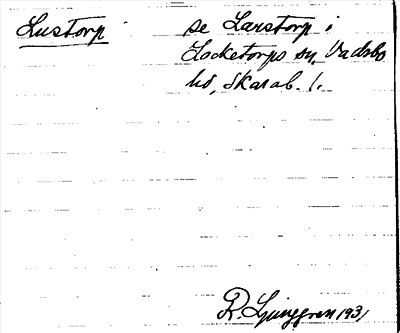 Lustorp se Larstorp i
Locketorps sn, Vadsbo
hd, Skarab. l.
R. Ljunggren 1931